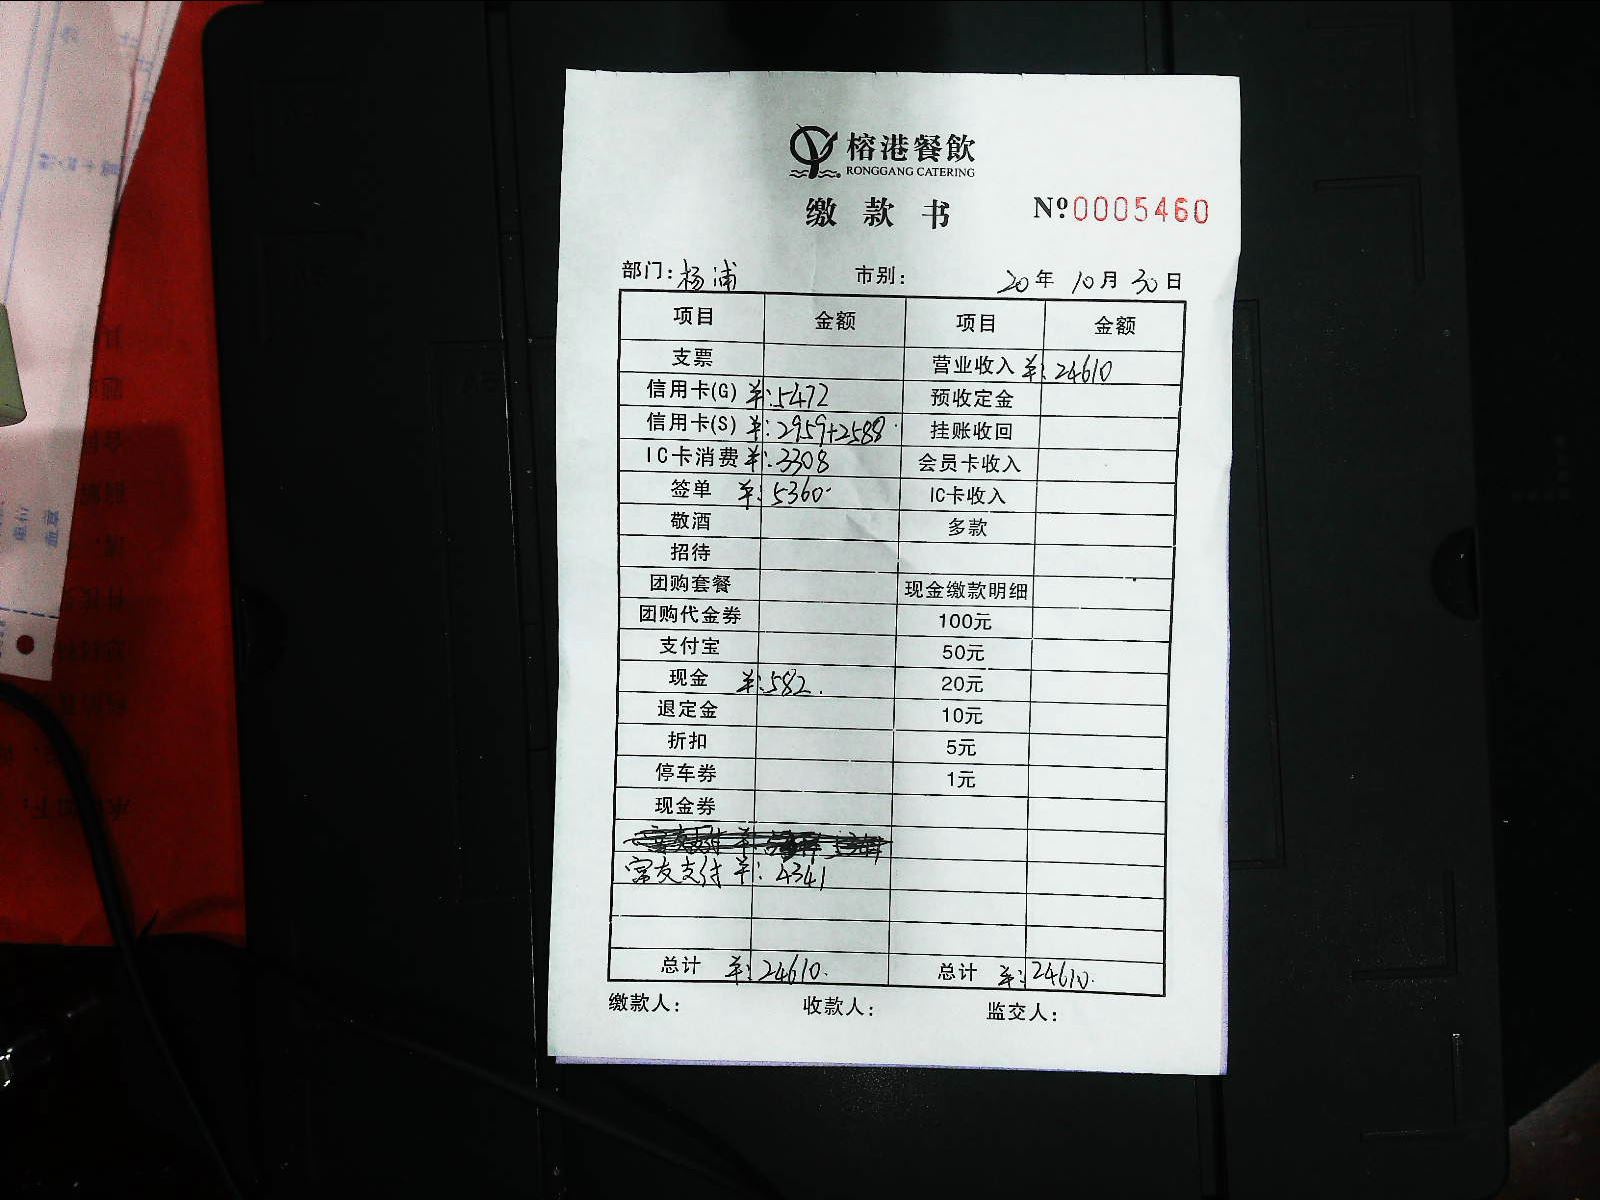 榕港餐飲
RONGGANG CATERING
缴款书 Nº0005460
部门：杨浦 市别： 20年 10月 30日
项目 金额 项目 金额
支票 营业收入 ¥:24610
信用卡(G) ¥:5472 预收定金
信用卡(S) ¥:2959+2588 挂账收回
IC卡消费 ¥:3308 会员卡收入
签单 ¥:5360 IC卡收入
敬酒 多款
招待
团购套餐 现金缴款明细
团购代金券 100元
支付宝 50元
现金 ¥:582 20元
退定金 10元
折扣 5元
停车券 1元
现金券
富友支付 ¥:4341
总计 ¥:24610 总计 ¥:24610
缴款人： 收款人： 监交人：